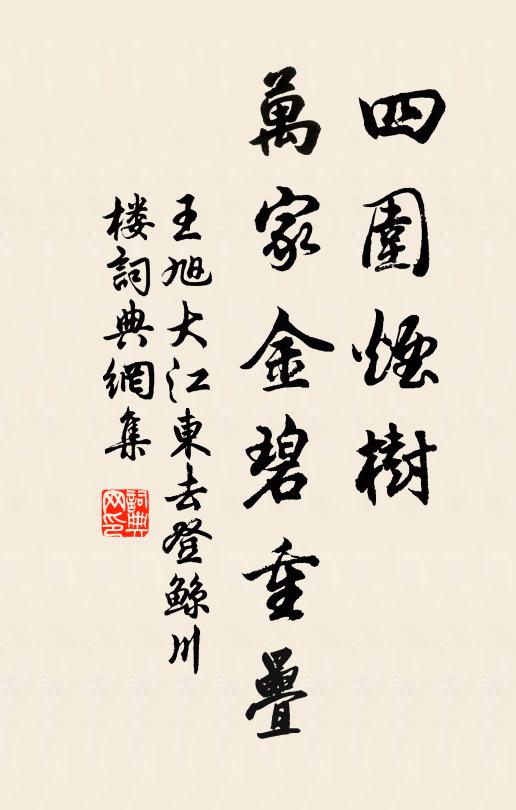 四圍煙樹
萬家金碧重疊
王旭大江東去登鯨川
楼詞典網集
詞典
网印